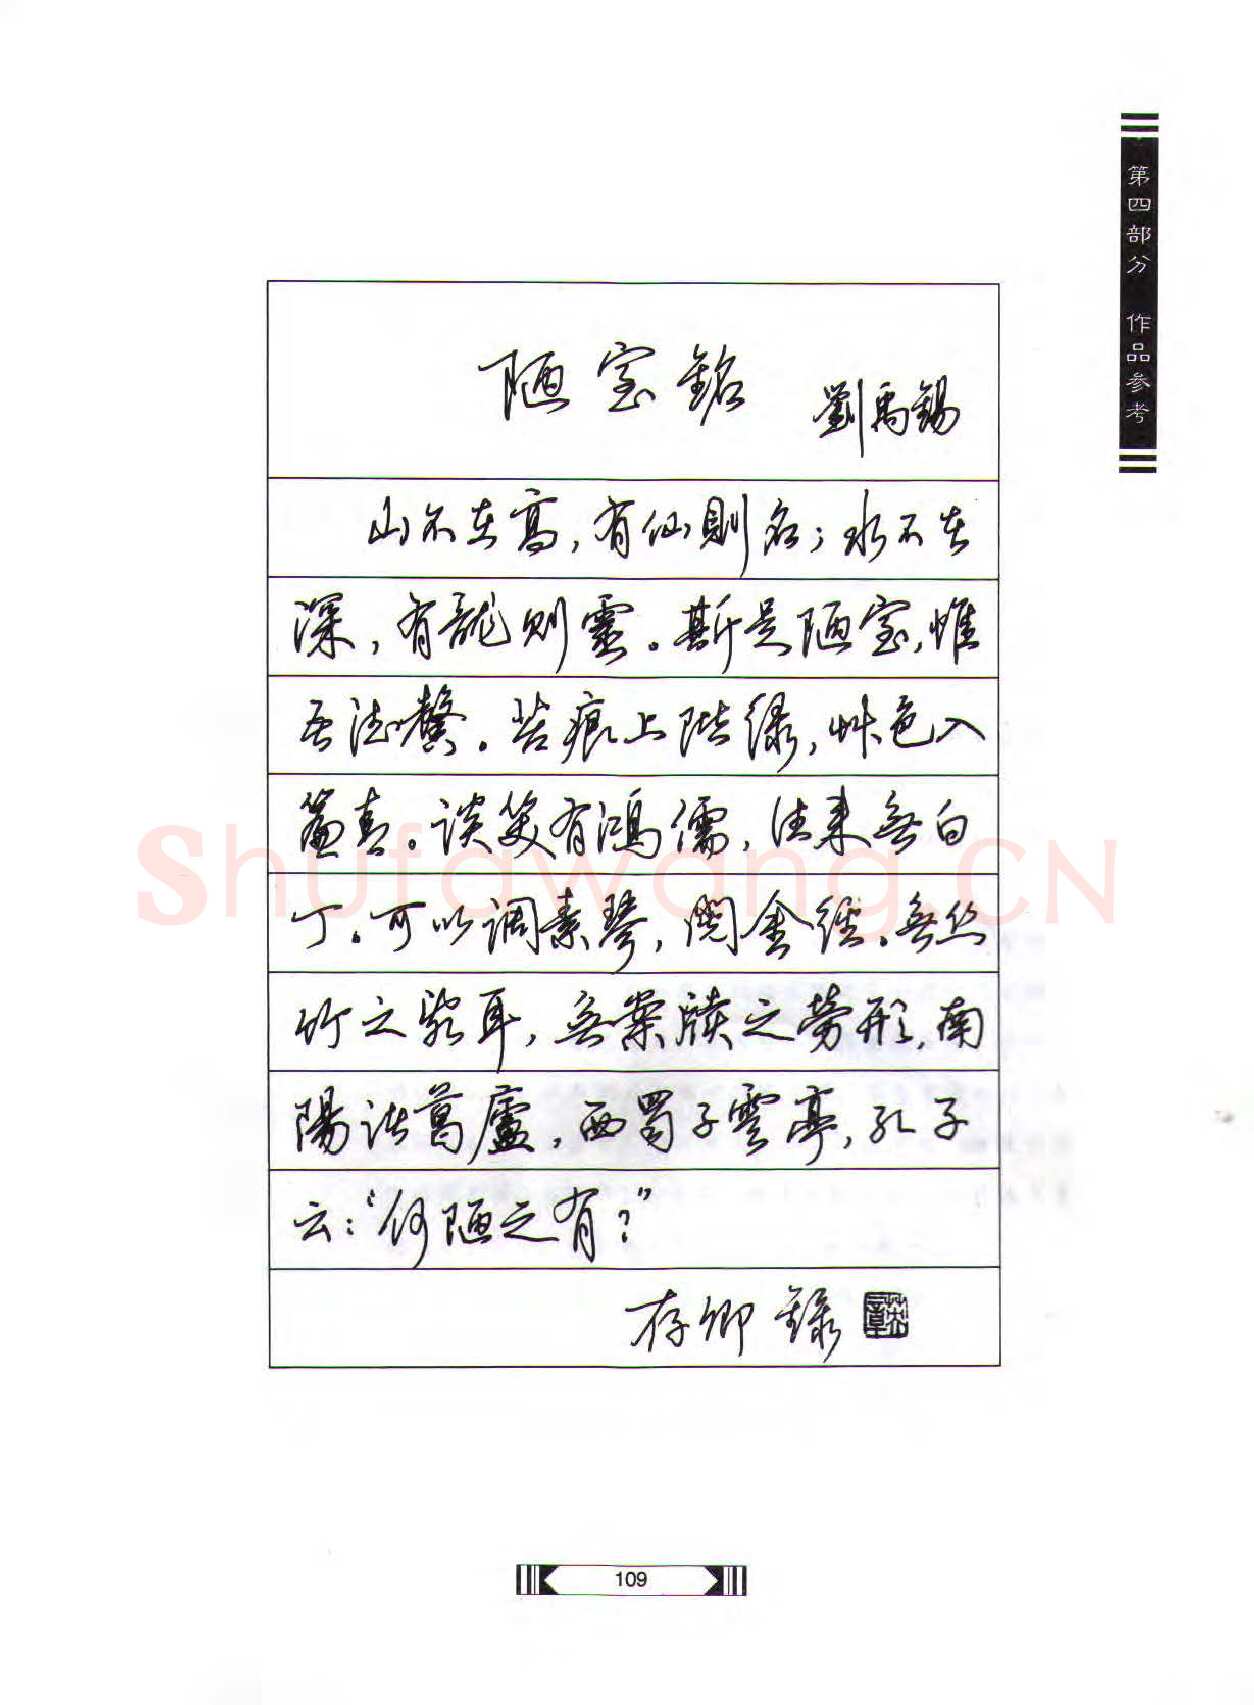 第四部分 作品参考
陋室銘 劉禹錫
山不在高，有仙則名；水不在
深，有龍则靈。斯是陋室，惟
吾德馨。苔痕上階緑，艸色入
簾青。谈笑有鴻儒，往来無白
丁。可以调素琴，閲金經。無丝
竹之亂耳，無案牘之勞形，南
陽诸葛廬，西蜀子雲亭，孔子
云：“何陋之有？”
存卿録
Shufawang.CN
109